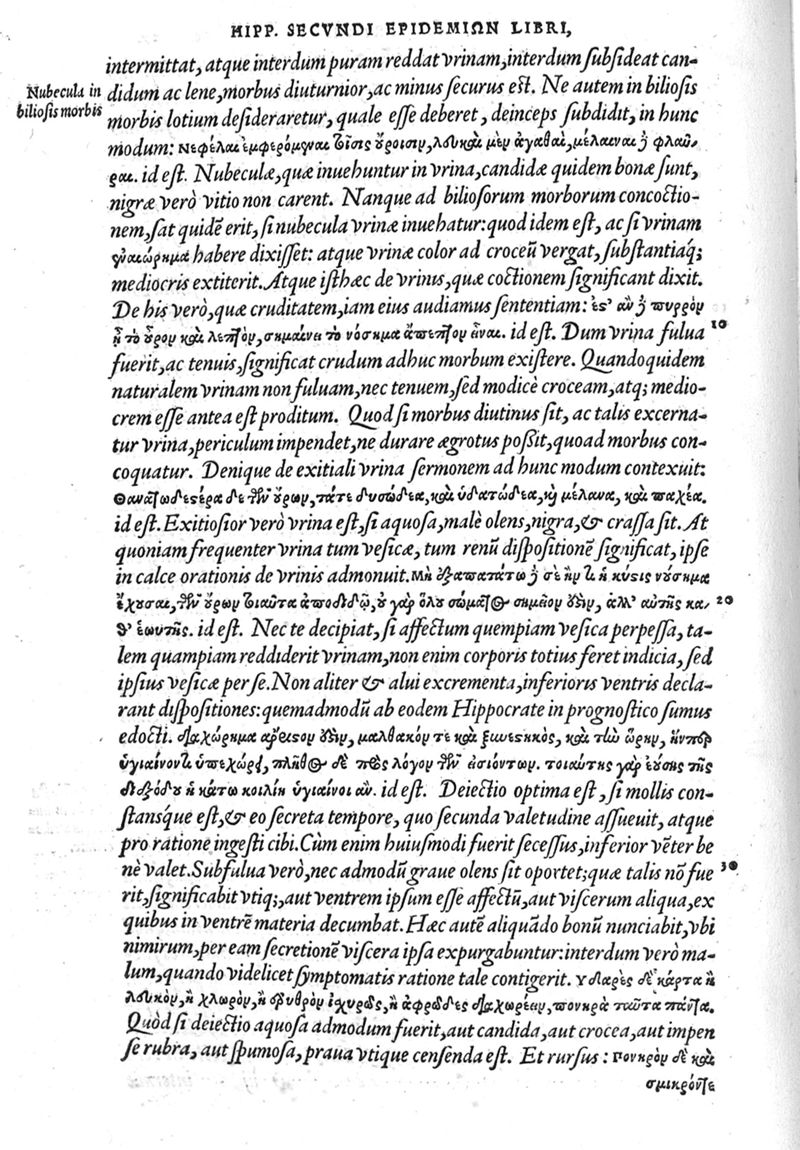 HIPP. SECVNDI EPIDEMIΩN LIBRI,
intermittat, atque interdum puram reddat vrinam, interdum subsideat can-
Nubecula in
biliosis morbis
didum ac lene, morbus diuturnior, ac minus securus est. Ne autem in biliosis
morbis lotium desideraretur, quale esse deberet, deinceps subdidit, in hunc
modum: νεφέλαι ἐμφερόμεναι τοῖσιν οὔροισιν, λευκαὶ μὲν ἀγαθαὶ, μέλαιναι δὲ φλαῦ-
ραι. id est. Nubeculæ, quæ inuehuntur in vrina, candidæ quidem bonæ sunt,
nigræ verò vitio non carent. Nanque ad biliosorum morborum concoctio-
nem, sat quidē erit, si nubecula vrinæ inuehatur: quod idem est, ac si vrinam
ἐναιώρημα habere dixisset: atque vrinæ color ad croceū vergat, substantiáq;
mediocris extiterit. Atque isthæc de vrinis, quæ coctionem significant dixit.
De his verò, quæ cruditatem, iam eius audiamus sententiam: ἔς' ἂν δὲ πυρρὸν
ᾖ τὸ οὖρον καὶ λεπτὸν, σημαίνει τὸ νόσημα ἄπεπτον εἶναι. id est. Dum vrina fulua 10
fuerit, ac tenuis, significat crudum adhuc morbum existere. Quandoquidem
naturalem vrinam non fuluam, nec tenuem, sed modicè croceam, atq; medio-
crem esse antea est proditum. Quod si morbus diutinus sit, ac talis excerna-
tur vrina, periculum impendet, ne durare ægrotus possit, quoad morbus con-
coquatur. Denique de exitiali vrina sermonem ad hunc modum contexuit:
Θανατωδέςερα δὲ τῶν οὔρων, τάτε δυσώδεα, καὶ ὑδατώδεα, καὶ μέλανα, καὶ παχέα.
id est. Exitiosior verò vrina est, si aquosa, malè olens, nigra, & crassa sit. At
quoniam frequenter vrina tum vesicæ, tum renū dispositionē significat, ipse
in calce orationis de vrinis admonuit. Μὴ ἐξαπατάτω δὲ σὲ ἤν τι ἡ κύσις νόσημα
ἔχουσα, τῶν οὔρων τοιαῦτα ἀποδιδῷ, οὐ γὰρ ὅλου σώματος σημεῖον οὐδὲν, ἀλλ' αὐτῆς κα- 20
θ' ἑωυτῆς. id est. Nec te decipiat, si affectum quempiam vesica perpessa, ta-
lem quampiam reddiderit vrinam, non enim corporis totius feret indicia, sed
ipsius vesicæ per se. Non aliter & alui excrementa, inferioris ventris decla-
rant dispositiones: quemadmodū ab eodem Hippocrate in prognostico sumus
edocti. διαχώρημα ἄριςον οὐδὲν, μαλθακόν τε καὶ ξυνεςηκὸς, καὶ τὴν ὥρην, ἥνπερ
ὑγιαίνοντι ὑπεχώρει, πλῆθος δὲ πρὸς λόγον τῶν ἐσιόντων. τοιαύτης γὰρ ἐούσης τῆς
διεξόδου ἡ κάτω κοιλίη ὑγιαίνοι ἄν. id est. Deiectio optima est, si mollis con-
stansque est, & eo secreta tempore, quo secunda valetudine assueuit, atque
pro ratione ingesti cibi. Cùm enim huiusmodi fuerit secessus, inferior vēter be
nè valet. Subfulua verò, nec admodū graue olens sit oportet; quæ talis nō fue 30
rit, significabit vtiq;, aut ventrem ipsum esse affectū, aut viscerum aliqua, ex
quibus in ventrē materia decumbat. Hæc autē aliquādo bonū nunciabit, vbi
nimirum, per eam secretionē viscera ipsa expurgabuntur: interdum verò ma-
lum, quando videlicet symptomatis ratione tale contigerit. Υδαρὲς δὲ κάρτα ἢ
λευκὸν, ἢ χλωρὸν, ἢ ἐρυθρὸν ἰσχυρῶς, ἢ ἀφρῶδες διαχωρέειν, πονηρὰ ταῦτα πάντα.
Quòd si deiectio aquosa admodum fuerit, aut candida, aut crocea, aut impen
se rubra, aut spumosa, praua vtique censenda est. Et rursus: Πονηρὸν δὲ καὶ
σμικρόντε